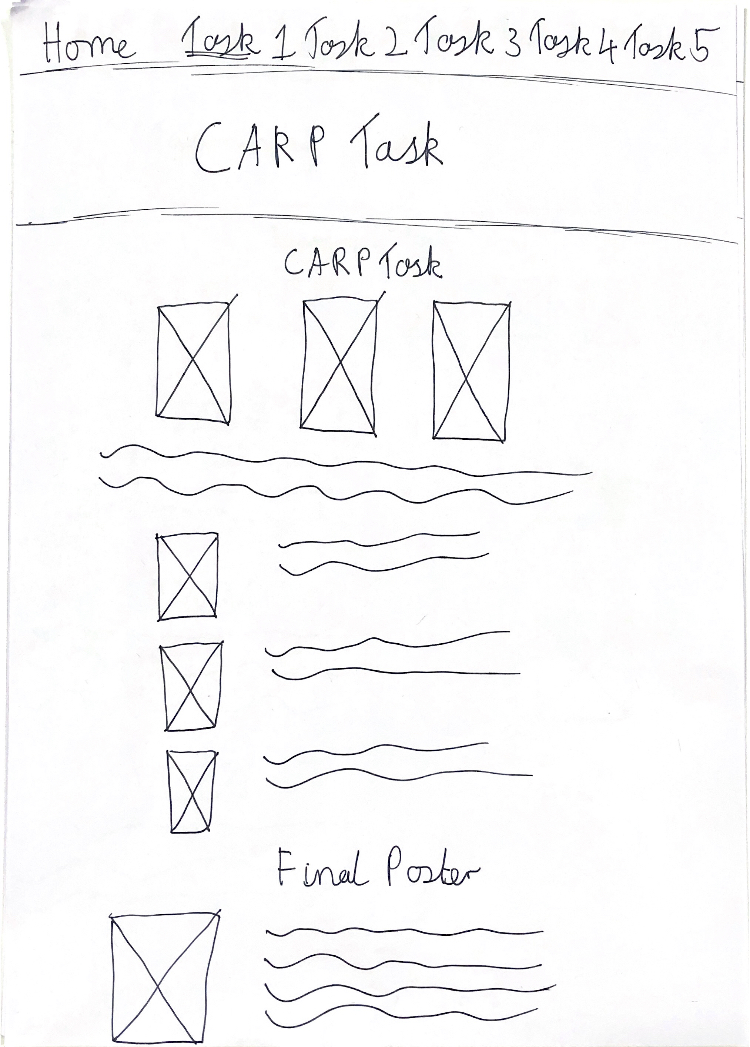 Home Task 1 Task 2 Task 3 Task 4 Task 5
CARP Task
CARP Task
Final Poster